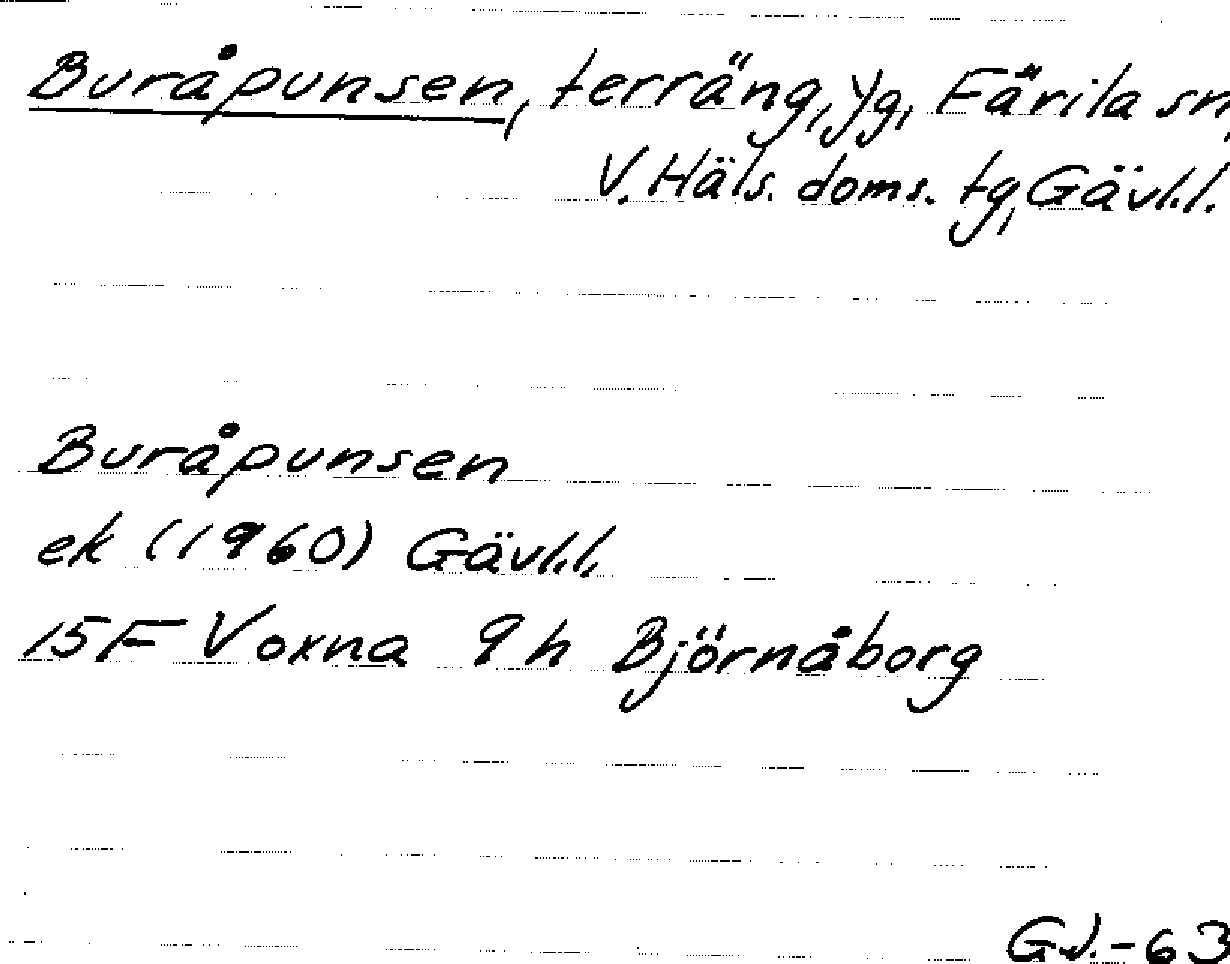 Buråpunsen, terräng, yg, Färila sn,
V. Häls. doms. tg, Gävl.l.
Buråpunsen
ek (1960) Gävl.l.
15F Voxna 9h Björnåborg
GJ.-63